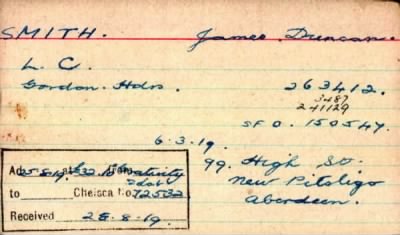 SMITH. James Duncan.
L. C.
Gordon. Hdrs. 263412.
3487
241129
SF O. 150547.
6.3.19.
99. High St.
New Pitsligo
Aberdeen.
to Chelsea No. 72532
Received 28.8.19.